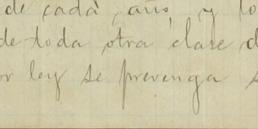 de cada año, y lo
de toda otra clase d
r ley se prevenga